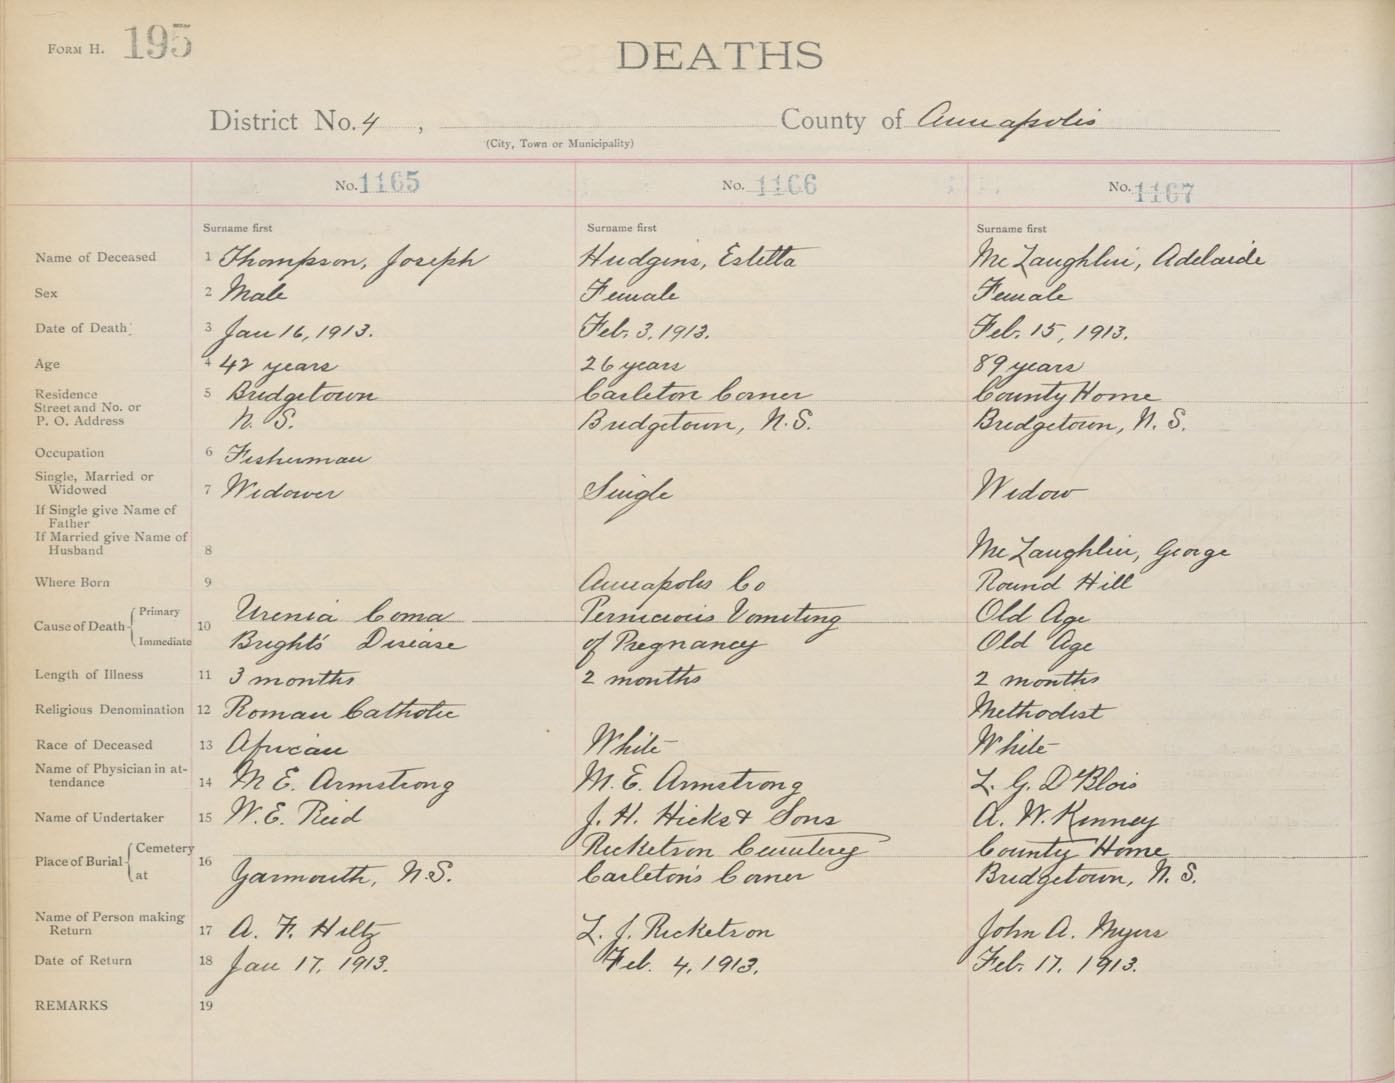 FORM H. 195
DEATHS
District No. 4 , County of Annapolis
(City, Town or Municipality)
No. 1165 No. 1166 No. 1167
Surname first Surname first Surname first
Name of Deceased 1 Thompson, Joseph Hudgins, Estella McLaughlin, Adelaide
Sex 2 Male Female Female
Date of Death 3 Jan 16, 1913. Feb. 3, 1913. Feb. 15, 1913.
Age 4 42 years 26 years 89 years
Residence 5 Bridgetown Carleton Corner County Home
Street and No. or
P. O. Address N. S. Bridgetown, N.S. Bridgetown, N. S.
Occupation 6 Fisherman
Single, Married or
Widowed 7 Widower Single Widow
If Single give Name of
Father
If Married give Name of
Husband 8 McLaughlin, George
Where Born 9 Annapolis Co Round Hill
Cause of Death Primary 10 Urenia Coma Pernicious Vomiting Old Age
Immediate Bright's Disease of Pregnancy Old Age
Length of Illness 11 3 months 2 months 2 months
Religious Denomination 12 Roman Catholic Methodist
Race of Deceased 13 African White White
Name of Physician in at-
tendance 14 M E. Armstrong M. E. Armstrong L. G. DeBlois
Name of Undertaker 15 W. E. Reid J. H. Hicks & Sons A. W. Kinney
Place of Burial Cemetery 16 Ricketson Cemetery County Home
at Yarmouth, N.S. Carleton's Corner Bridgetown, N. S.
Name of Person making
Return 17 A. F. Hiltz L. J. Ricketson John A. Myers
Date of Return 18 Jan 17, 1913. Feb. 4, 1913. Feb. 17, 1913.
REMARKS 19